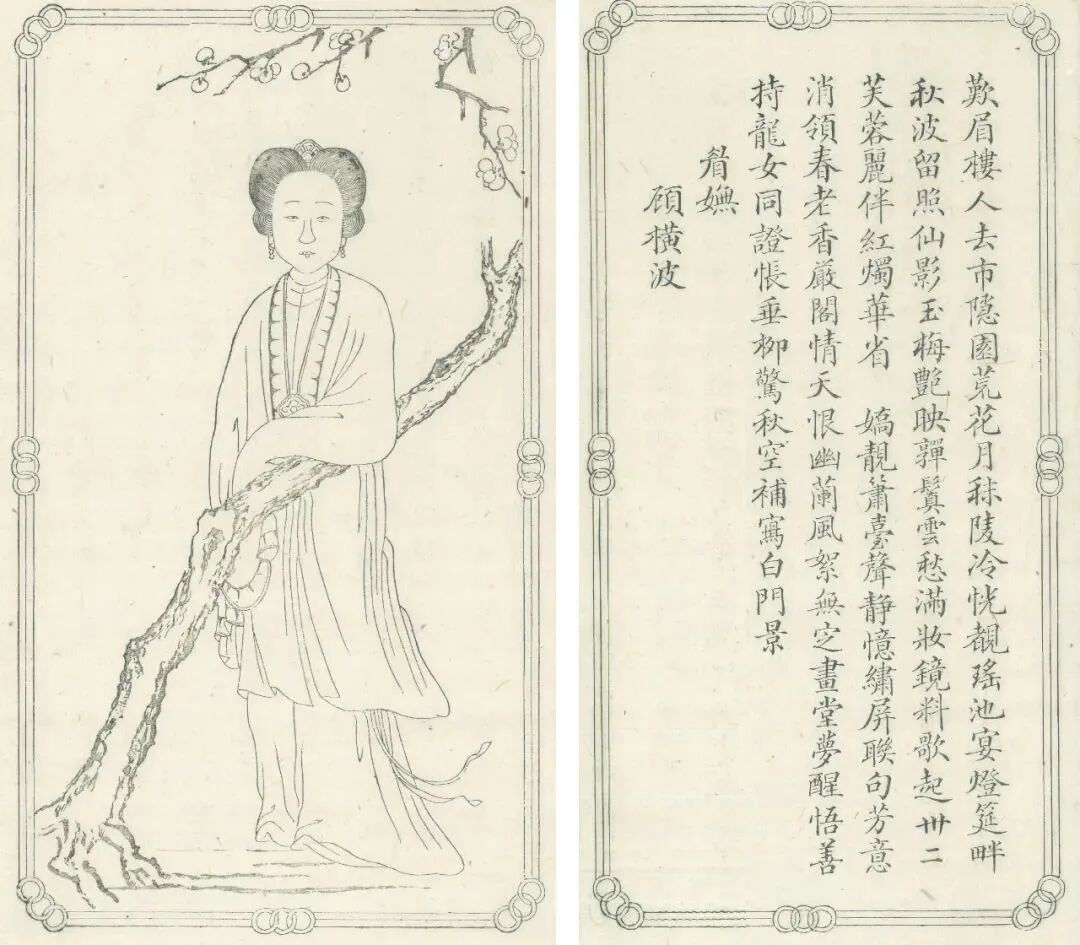 歎眉樓人去市隱園荒花月秣陵冷恍覩瑤池宴燈筵畔
秋波留照仙影玉梅艷映鬢雲愁滿妝鏡料歌起卅二
芙蓉麗伴紅燭華省 嬌靚簫臺聲靜憶繡屏聯句芳意
消領春老香嚴閣情天恨幽蘭風絮無定畫堂夢醒悟善
持龍女同證悵垂柳驚秋空補寫白門景
眉嫵
顧橫波